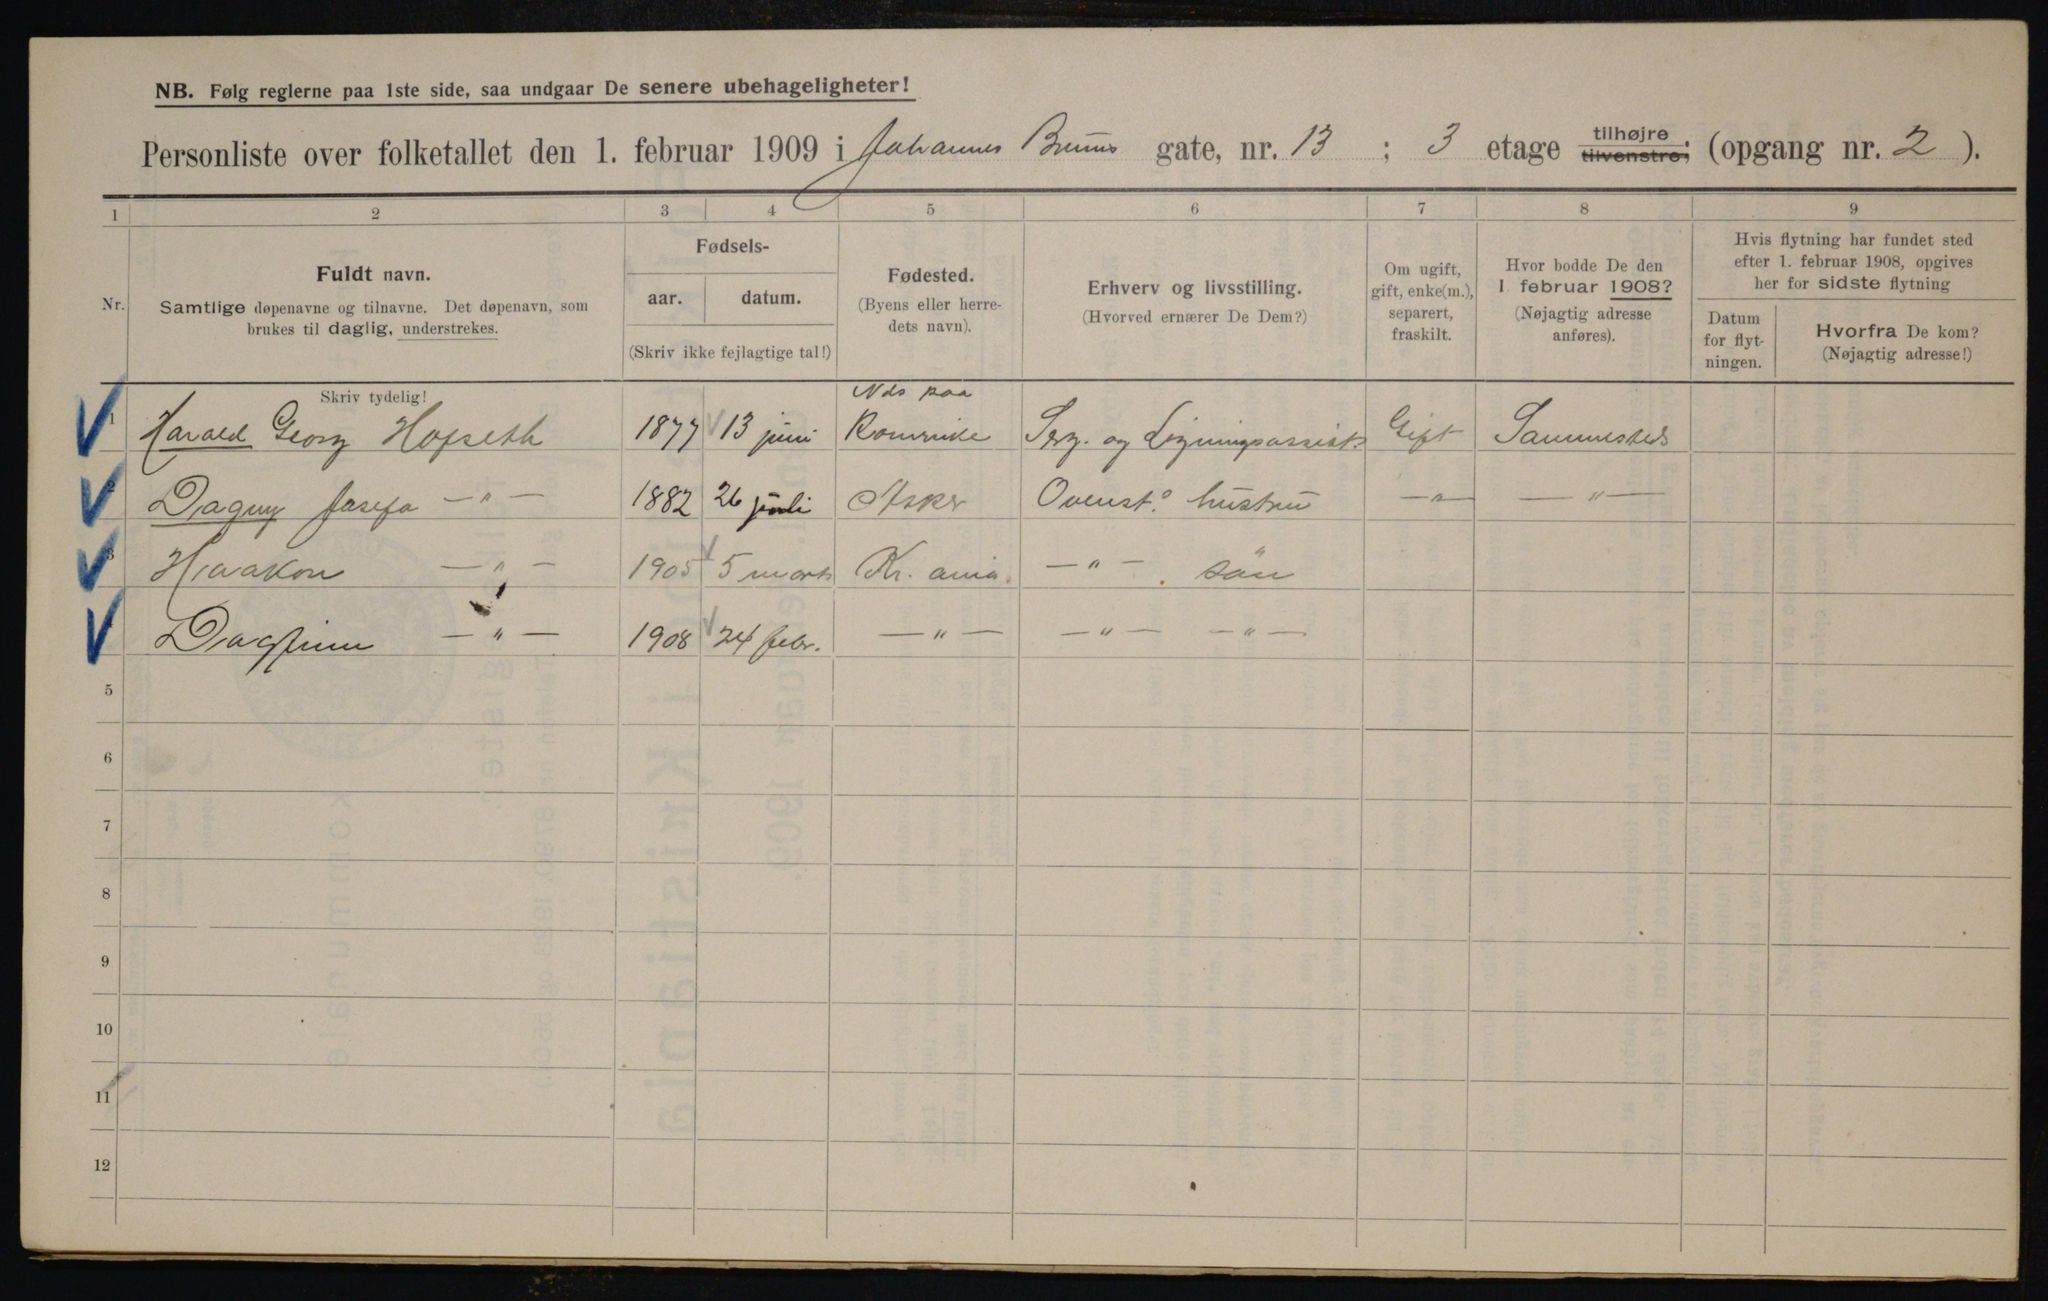 NB. Følg reglerne paa 1ste side, saa undgaar De senere ubehageligheter!
Personliste over folketallet den 1. februar 1909 i Johannes Bruns gate, nr. 13 ; 3 etage tilhøjre tilvenstre; (opgang nr. 2 ).
1 2 3 4 5 6 7 8 9
Nr.
Fuldt navn.
Samtlige døpenavne og tilnavne. Det døpenavn, som
brukes til daglig, understrekes.
Fødsels-
aar. datum.
(Skriv ikke fejlagtige tal!)
Fødested.
(Byens eller herre-
dets navn).
Erhverv og livsstilling.
(Hvorved ernærer De Dem?)
Om ugift,
gift, enke(m.),
separert,
fraskilt.
Hvor bodde De den
1. februar 1908?
(Nøjagtig adresse
anføres).
Hvis flytning har fundet sted
efter 1. februar 1908, opgives
her for sidste flytning
Datum
for flyt-
ningen.
Hvorfra De kom?
(Nøjagtig adresse!)
Skriv tydelig!
1 Harald Georg Hofseth 1877 13 juni Nds paa Romerike Serg. og Ligningsassist. Gift Sammesteds
2 Dagny Josefa —"— 1882 26 juli Asker Ovenst. hustru —"— —"—
3 Haakon —"— 1905 5 marts Kr.ania. —"— sön
Dagfinn —"— 1908 24 febr. —"— —"— —"—
5
6
7
8
9
10
11
12